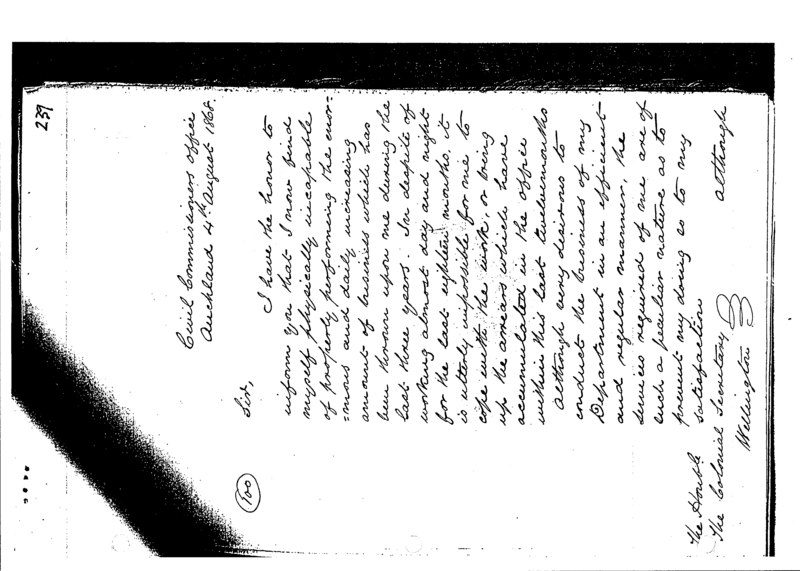 239
Civil Commissioners Office
Auckland 4th August 1868.
Sir,
100
I have the honor to
inform you that I now find
myself physically incapable
of properly performing the enor=
=mous and daily increasing
amount of business which has
been thrown upon me during the
last three years. In despite of
working almost day and night
for the last eighteen months, it
is utterly impossible for me to
cope with the work, or bring
up the arrears which have
accumulated in the office
within this last twelvemonths
Although very desirous to
conduct the business of my
Department in an efficient
and regular manner, the
services required of me are of
such a peculiar nature as to
prevent my doing so to my
satisfaction
The Honble
The Colonial Secretary
Wellington
although